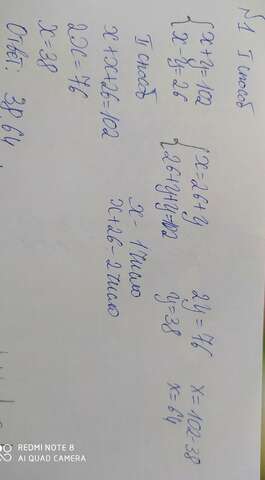 №1 I способ
{ x+y=102
x-y=26
{ x=26+y
26+y+y=102
2y=76
y=38
x=102-38
x=64
II способ
x+x+26=102
2x=76
x=38
x - 1 число
x+26 - 2 число
Ответ: 38, 64.
REDMI NOTE 8
AI QUAD CAMERA